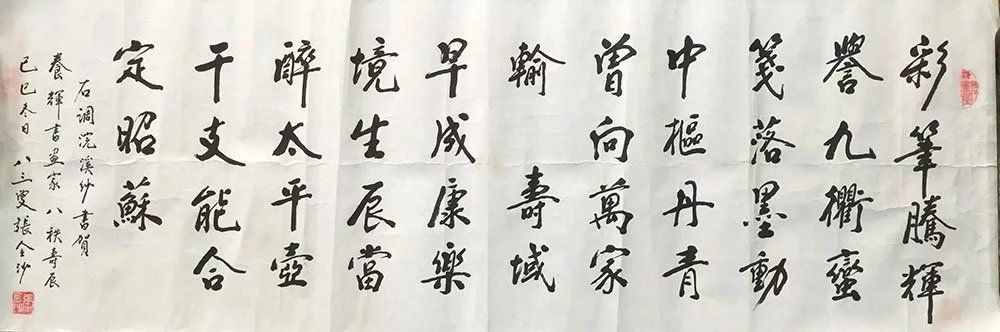 彩筆騰輝
譽九衢蠻
箋落墨動
中樞丹青
曾向萬家
輸壽域
早成康樂
境生辰當
醉太平壺
干支能合
定昭蘇
右調浣溪紗書賀
養輝書畫家八秩壽辰
己巳冬日八三叟張金沙